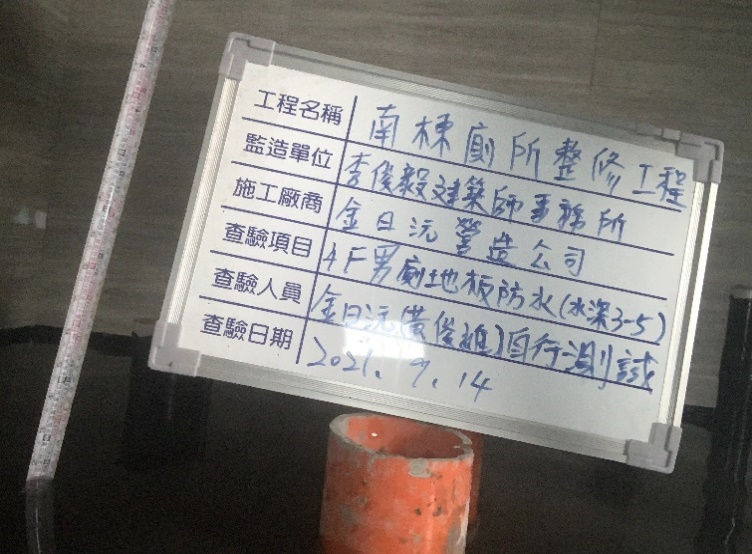 工程名稱 南棟廁所整修工程
監造單位 李俊毅建築師事務所
施工廠商 金日沅營造公司
查驗項目 4F男廁地板防水(水深3-5)
查驗人員 金日沅(黃俊雄)自行測試
查驗日期 2021.9.14